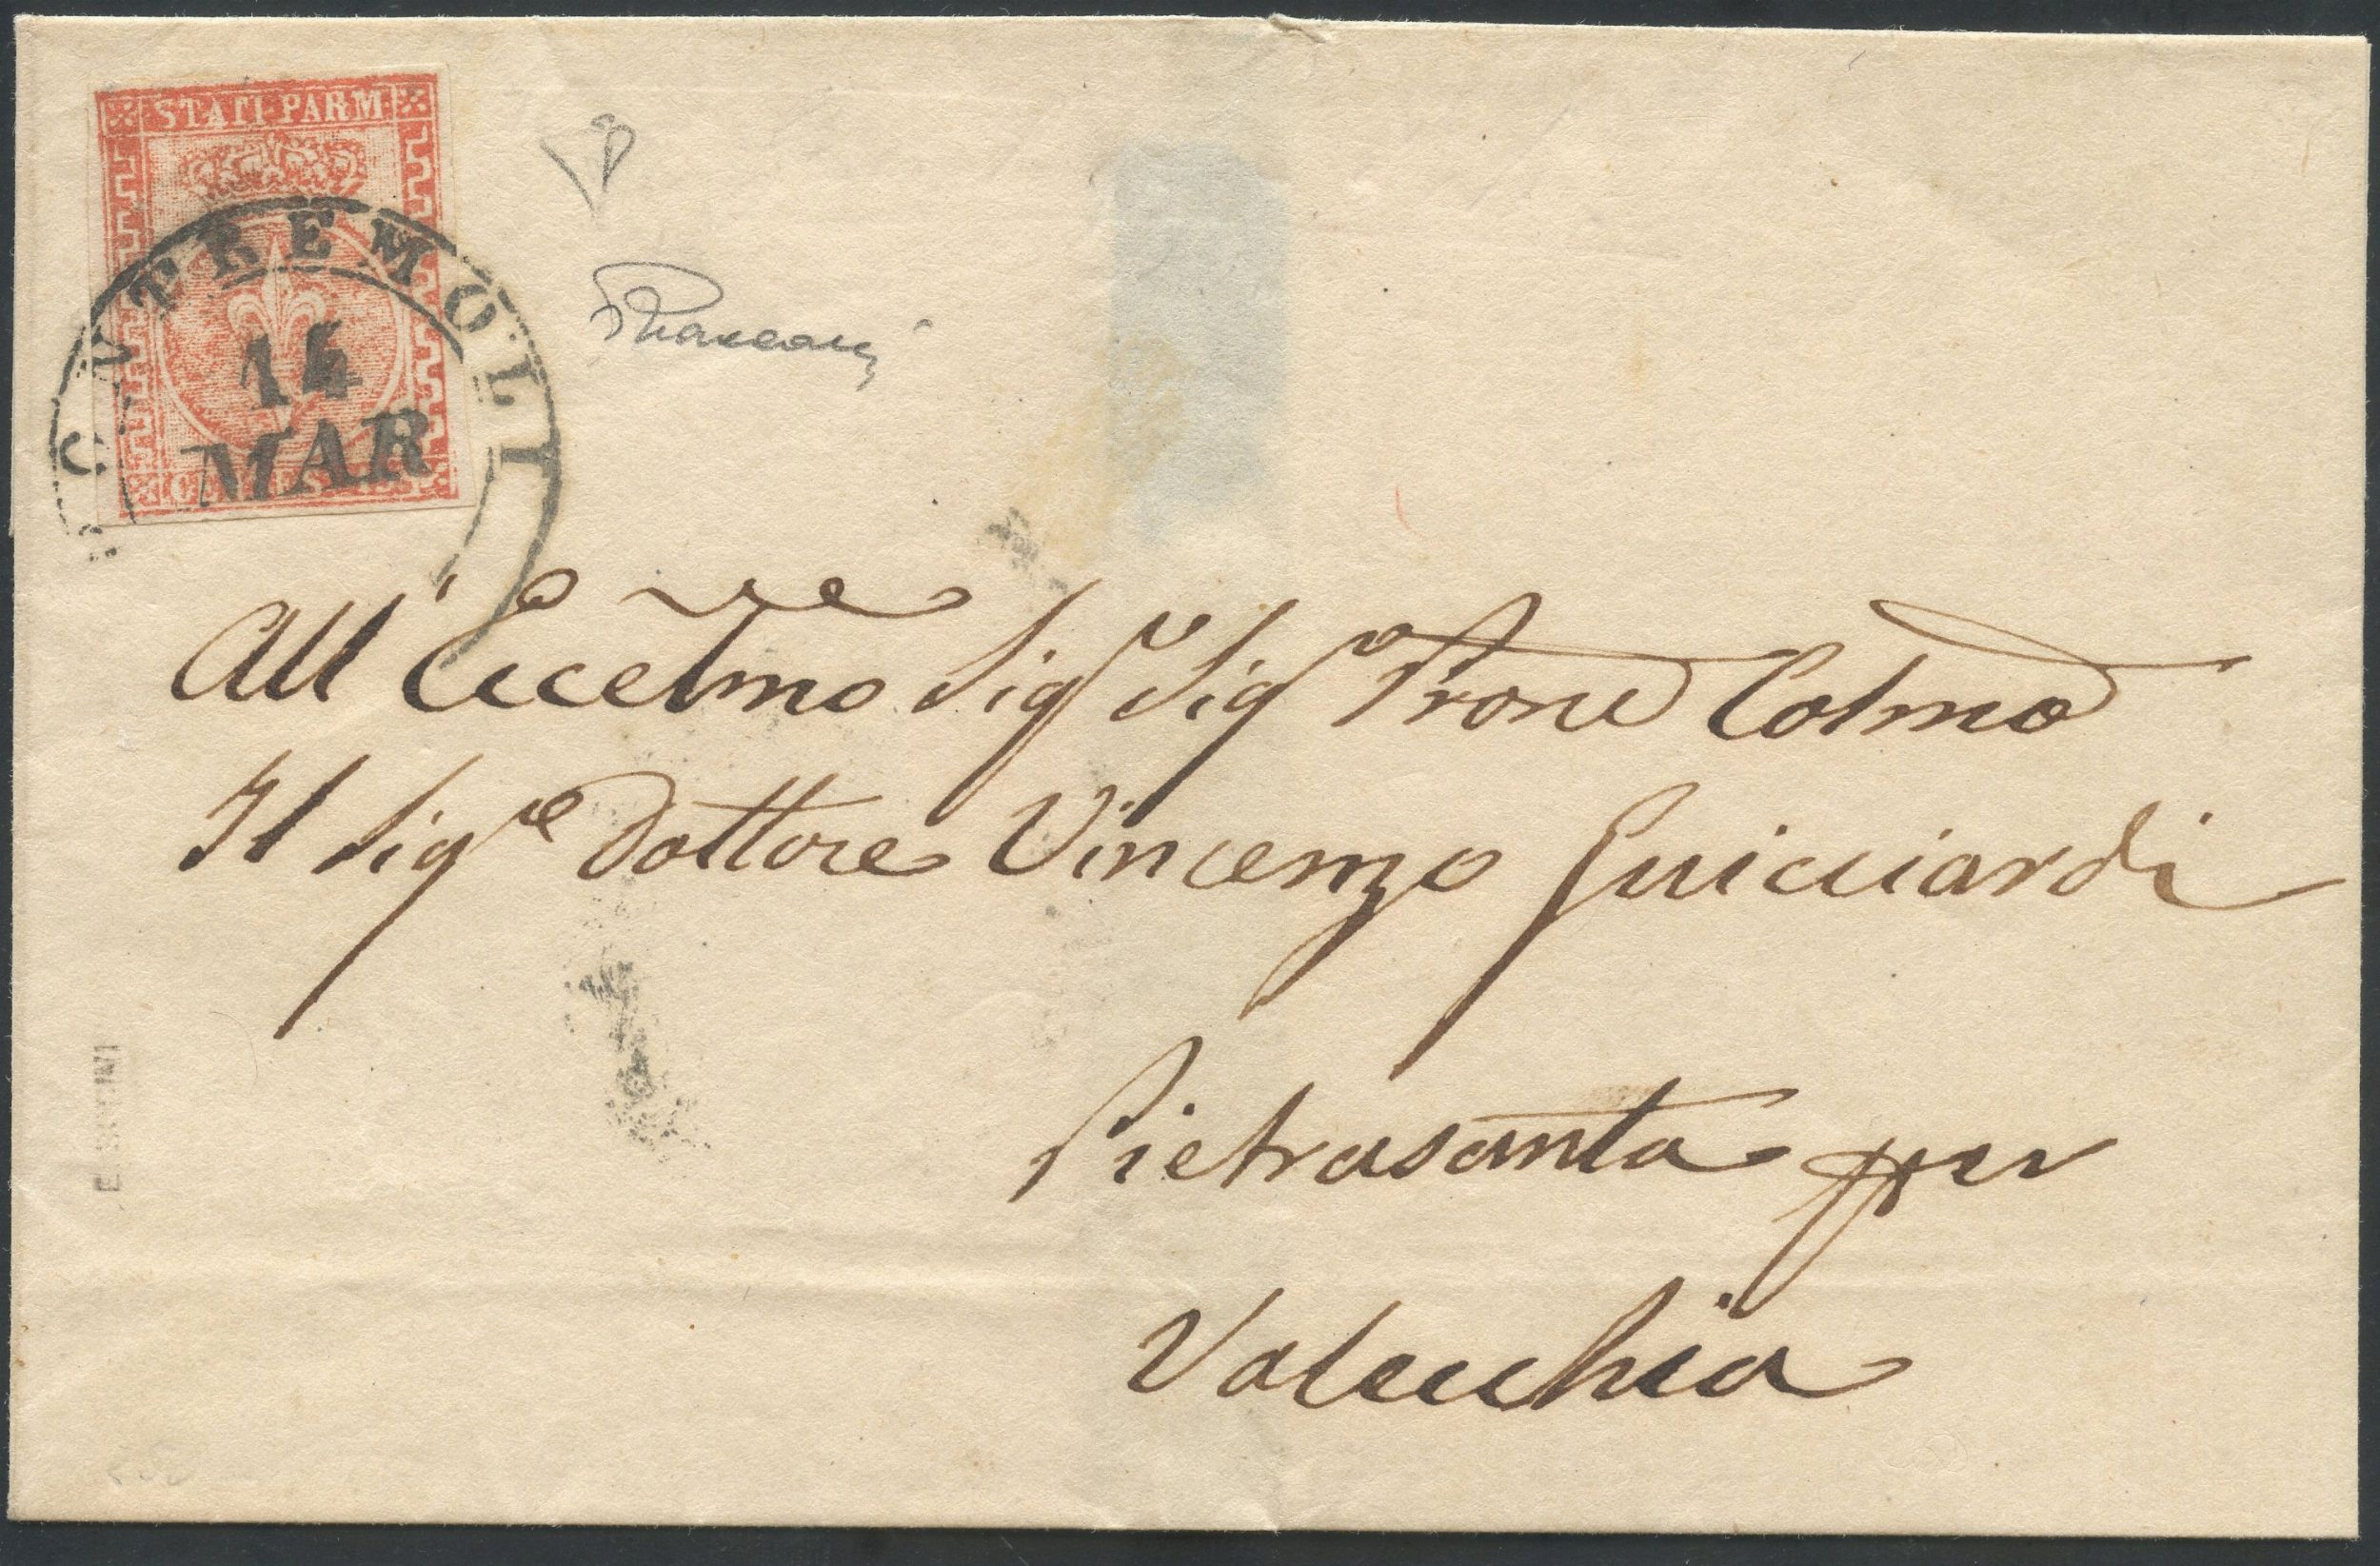 STATI PARM
PONTREMOLI
14
MAR
All' Eccelmo Sigr Sigr Prone Colmo
Il Sigre Dottore Vincenzo Guicciardi
Pietrasanta per
Valecchia